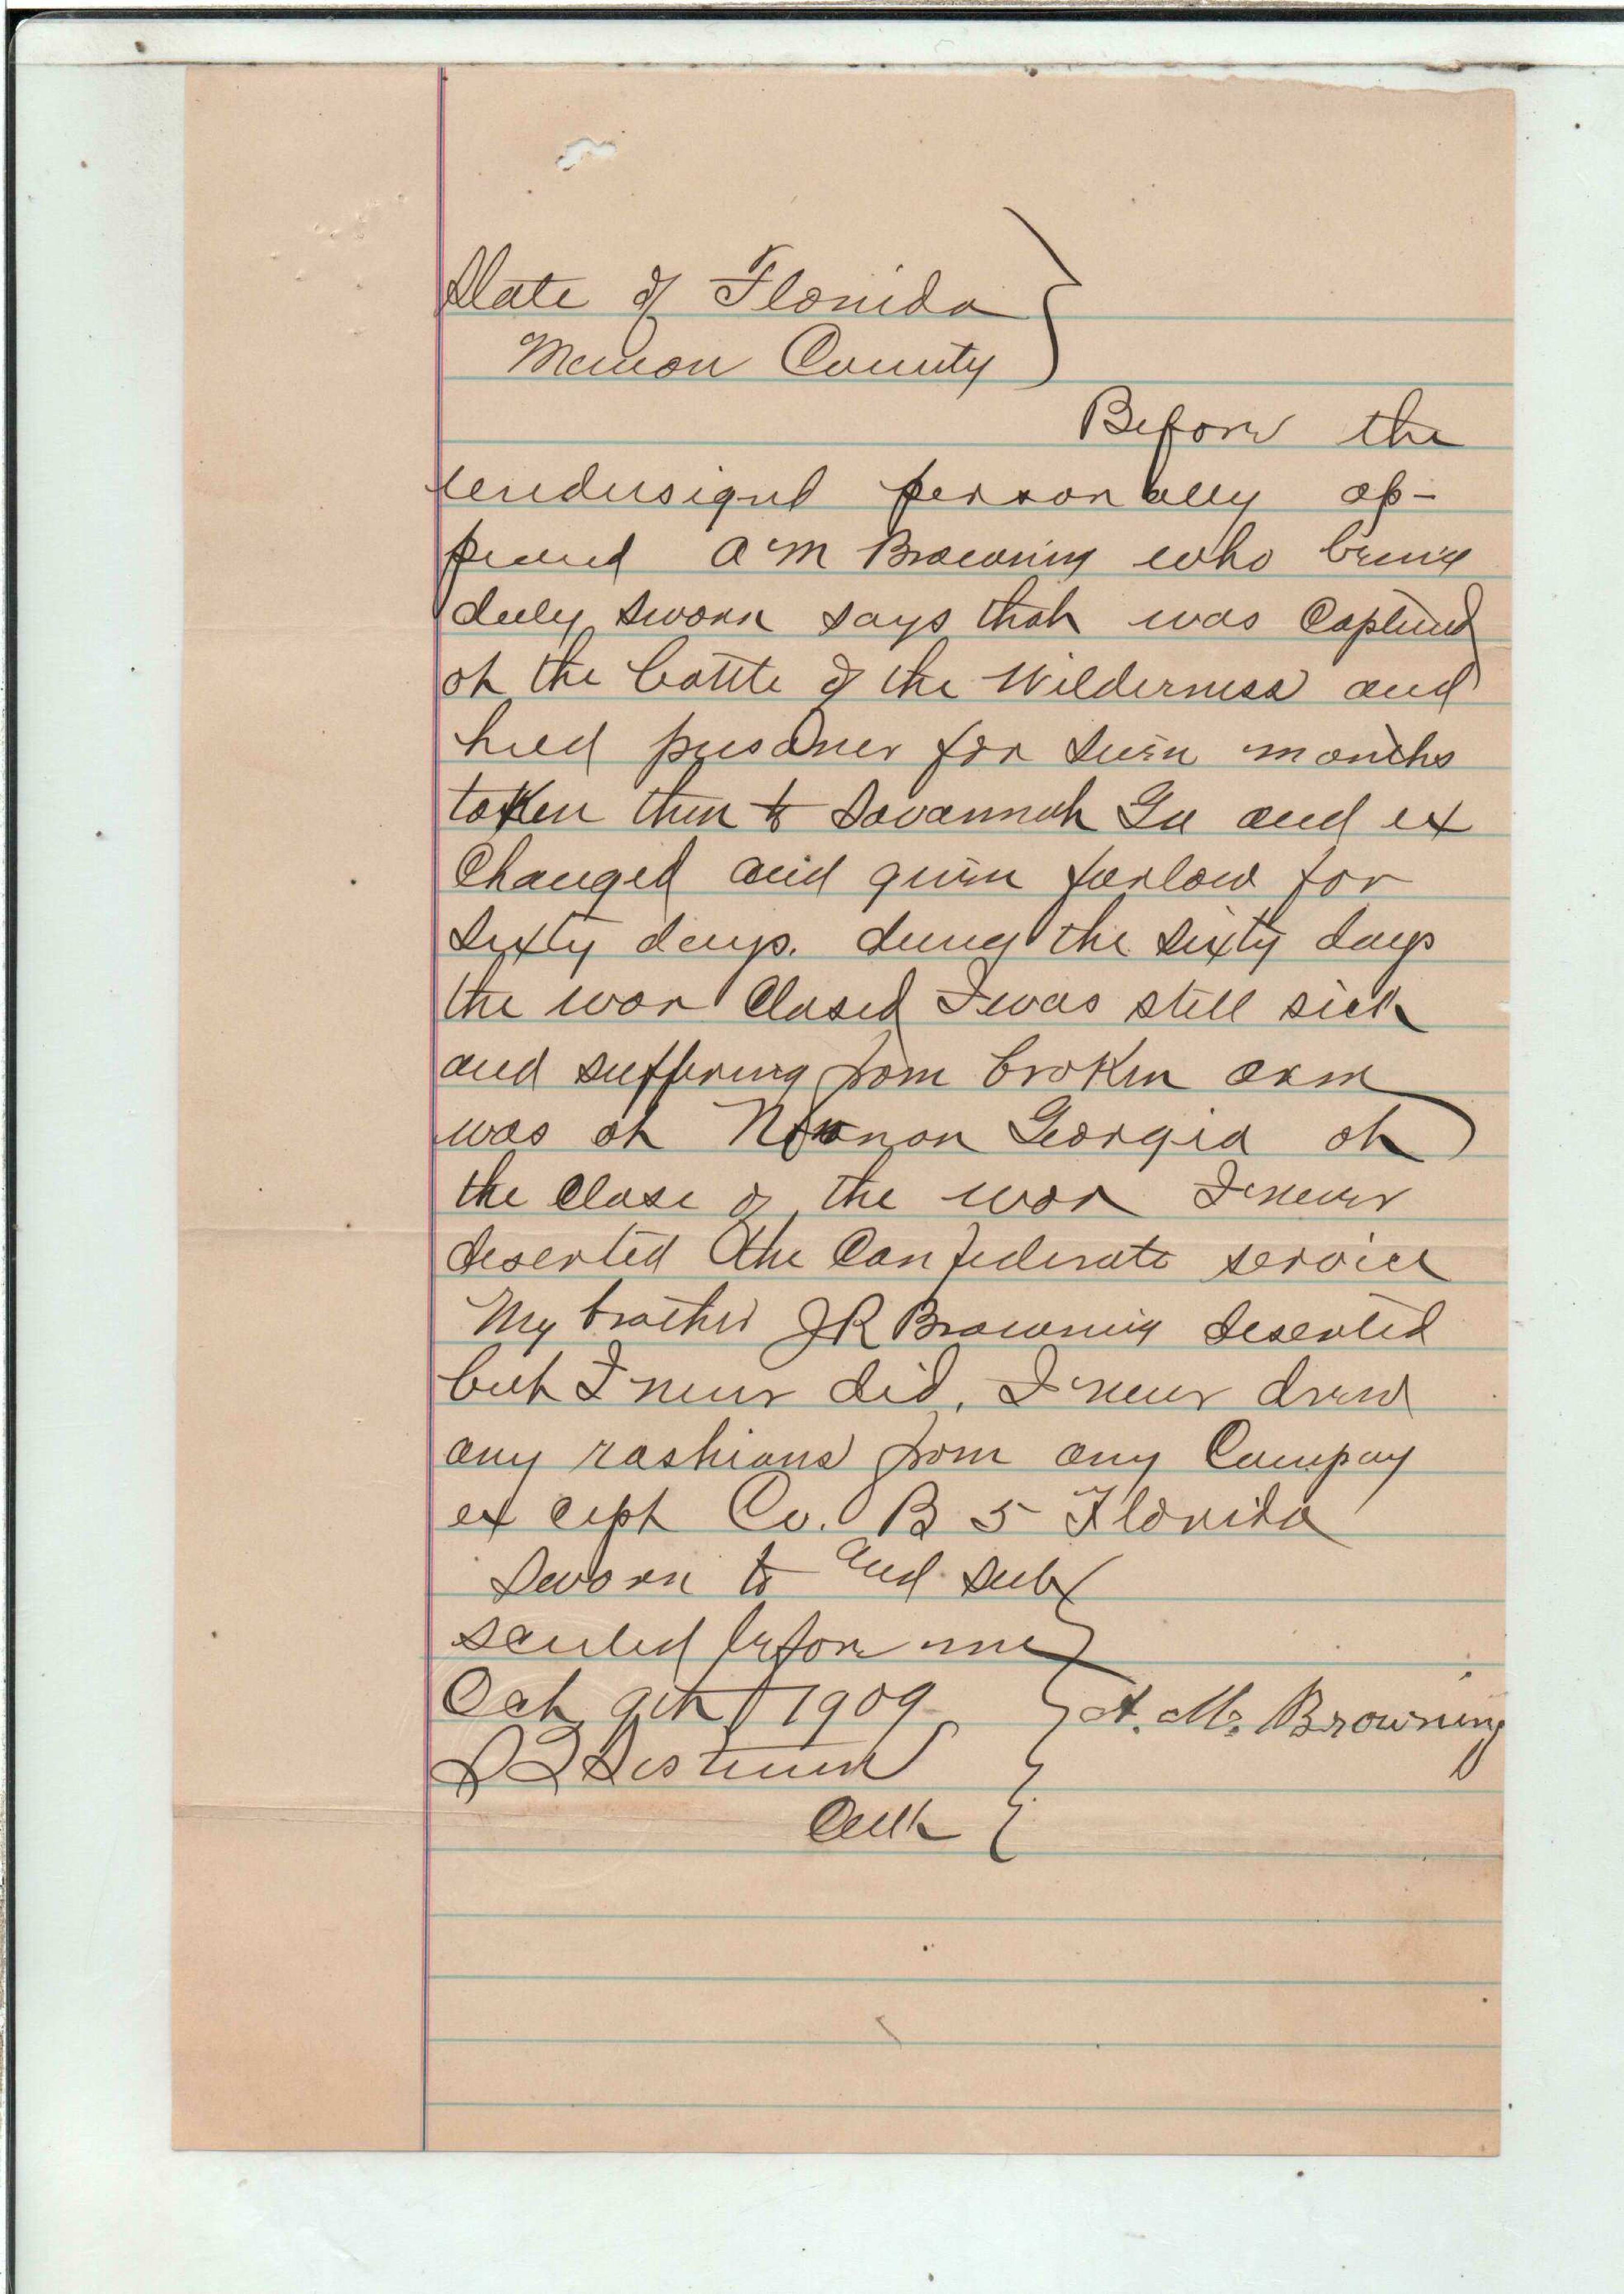 State of Florida
Marion County
Before the
undersigned personally ap-
peared A M Browning who being
duly sworn says that was Captured
at the battle of the Wilderness and
held prisoner for seven months
taken then to Savannah Ga and ex
Changed and given furlow for
sixty days. during the sixty days
the war Closed I was still sick
and suffering from broken arm
was at Georgia at
the close of the war I never
deserted the Confederate service
My brother JR Browning deserted
but I never did. I never drew
any rashions from any Company
except Co. B 5 Florida
Sworn to and sub
scribed before me
Oct 9th 1909 A. M. Browning
Clerk